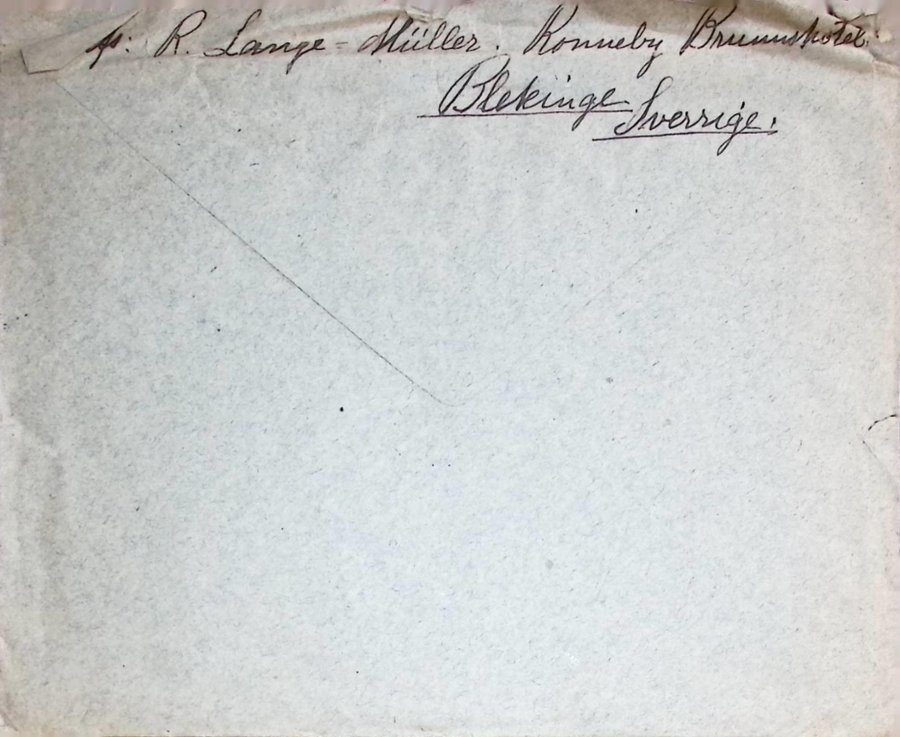 fr: R. Lange-Müller. Ronneby Brunnshotel.
Blekinge
Sverrige.